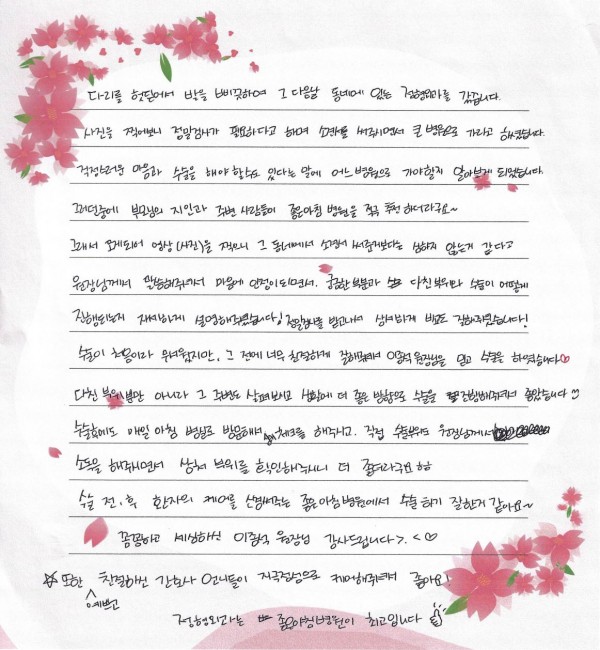 다리를 헛딛어서 발을 삐끗하여 그 다음날 동네에 있는 정형외과를 갔습니다.
사진을 찍어보니 정밀검사가 필요하다고 하며 소견서를 써주시면서 큰 병원으로 가라고 하셨습니다.
걱정스러운 마음과 수술을 해야 할수도 있다는 말에 어느 병원으로 가야할지 알아보게 되었습니다.
그러던중에 부모님의 지인과 주변 사람들이 좋은아침 병원을 적극 추천 하더라구요~
그래서 오게되어 영상(사진)을 찍으니 그 동네에서 소견서 써준거보다는 심하지 않는거 같다고
원장님께서 말씀해주셔서 마음에 안정이되면서. 궁금한 부분과 다친 부위와 수술이 어떻게
진행되는지 자세하게 설명해주셨습니다! 정밀검사를 받고나서 상세하게 비교도 잘해주셨습니다!
수술이 처음이라 무서웠지만, 그 전에 너무 친절하게 잘해주셔서 이종석 원장님을 믿고 수술을 하였습니다♡
다친 부위뿐만 아니라 그 주변도 살펴보시고 상황에 더 좋은 방향으로 수술을 진행해주셔서 좋았습니다
수술후에도 매일 아침 병실로 방문해서 체크를 해주시고. 직접 수술부위도 원장님께서
소독을 해주시면서 상처 부위를 확인해주시니 더 좋더라구요 ㅎㅎ
수술 전, 후 환자의 케어를 신경써주는 좋은아침병원에서 수술 하기 잘한거 같아요~
꼼꼼하고 세심하신 이종석 원장님 감사드립니다>.<♡
☆ 또한 예쁘고 친절하신 간호사 언니들이 지극정성으로 케어해주셔서 좋아요!
정형외과는 좋은아침병원이 최고입니다